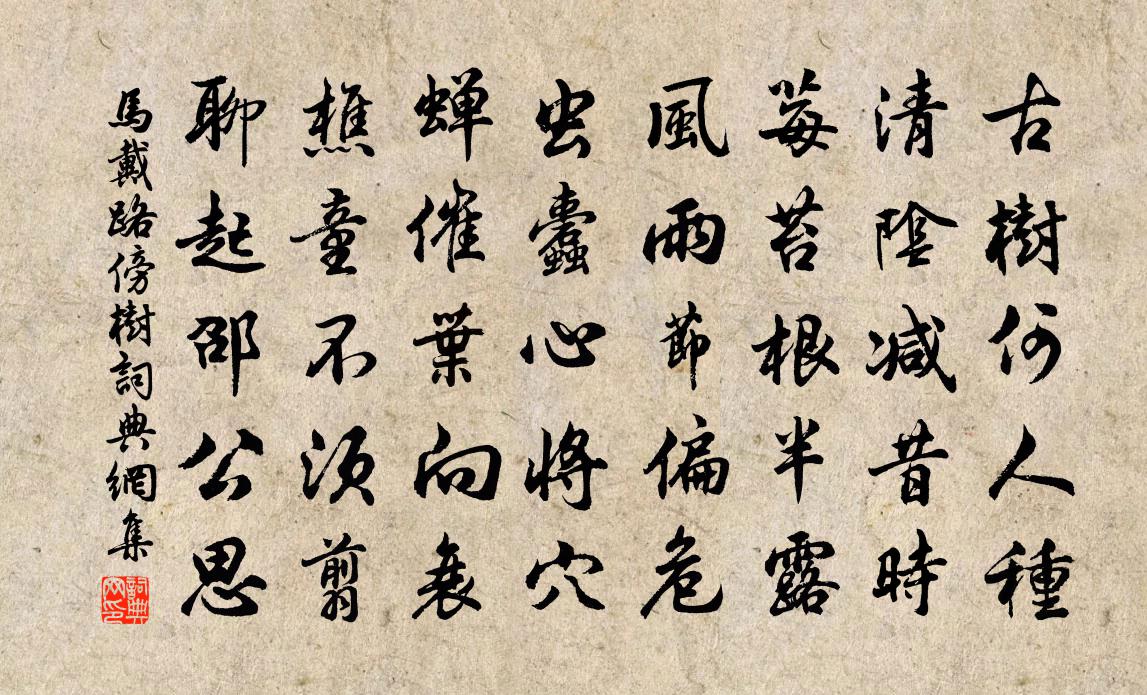 古樹何人種
清陰減昔時
莓苔根半露
風雨節偏危
虫蠹心將穴
蝉催葉向衰
樵童不須翦
聊起邵公思
馬戴路傍樹詞典網集
詞典网印